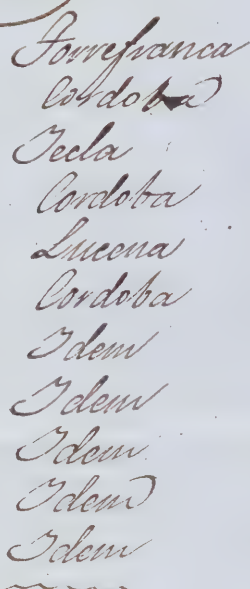 Torrefranca
Cordoba
Yecla
Cordoba
Lucena
Cordoba
Idem
Idem
Idem
Idem
Idem